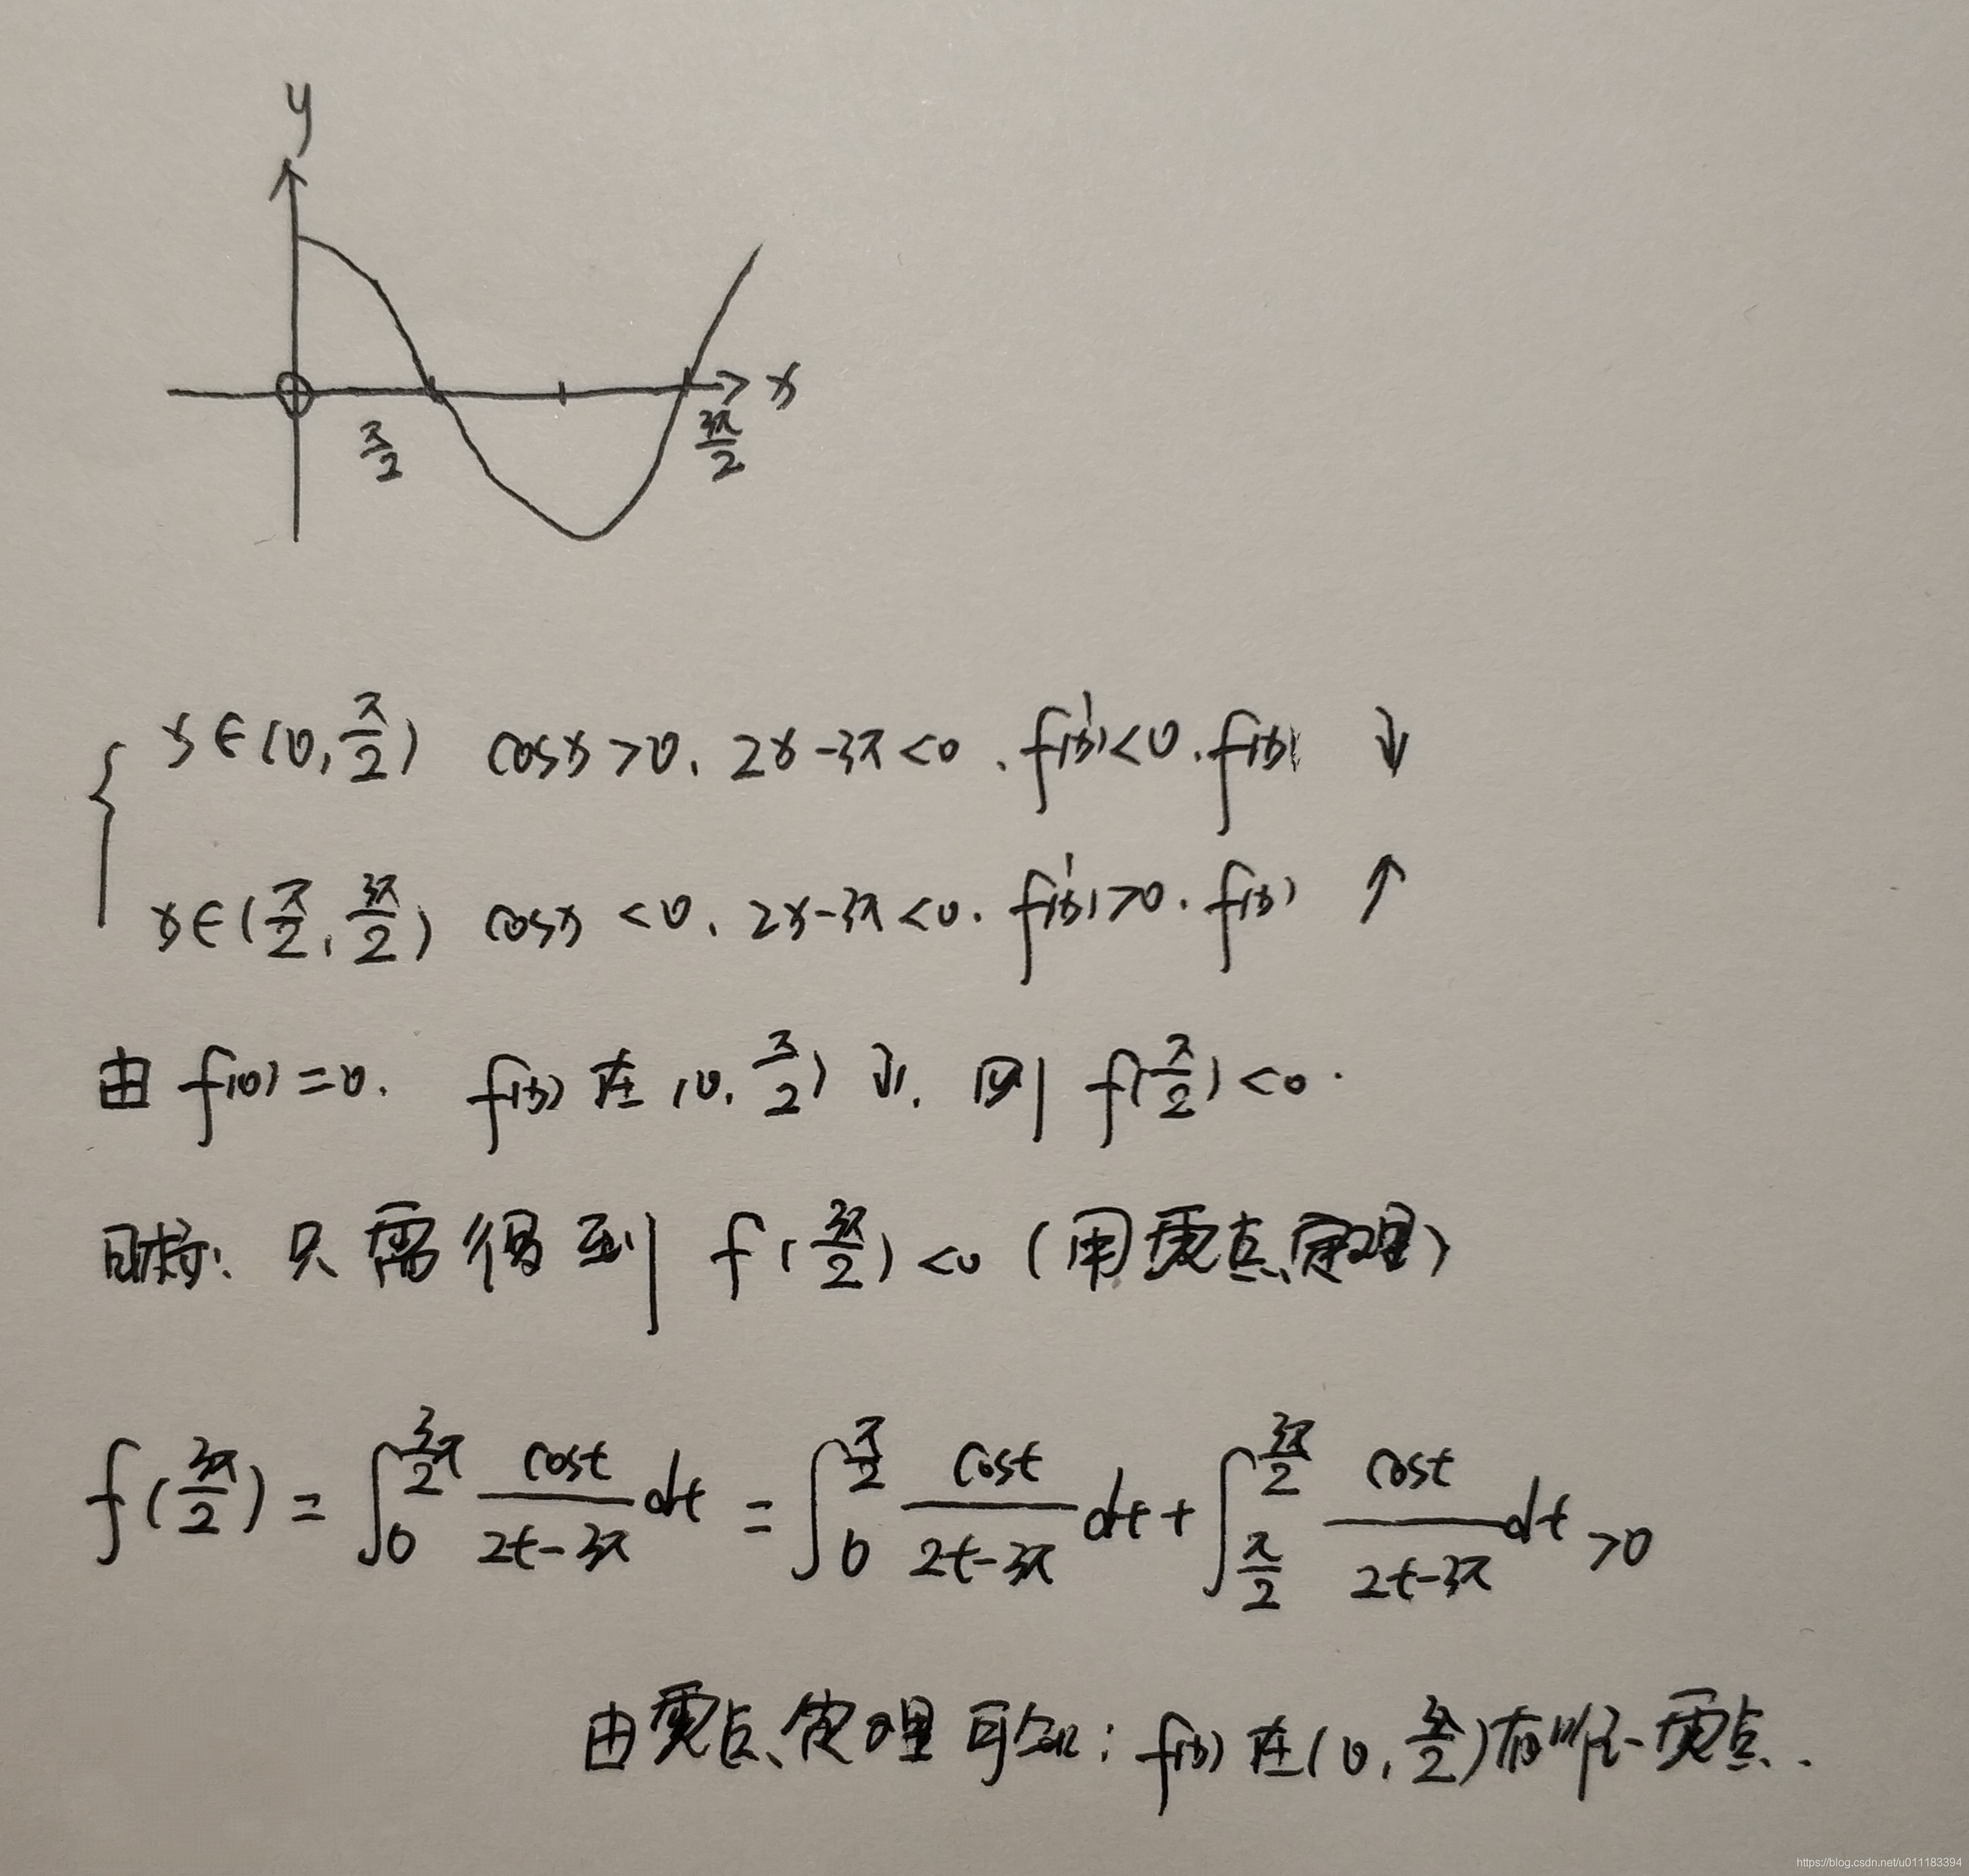 y
x
π/2
3π/2
{ x∈(0, π/2) cosx>0, 2x-3π<0, f'(x)<0, f(x) ↓
x∈(π/2, 3π/2) cosx<0, 2x-3π<0, f'(x)>0, f(x) ↑
由 f(0)=0. f(x) 在 (0, π/2) ↓, 则 f(π/2)<0.
目标: 只需得到 f(3π/2)<0 (用零点定理)
f(3π/2) = ∫_0^{3π/2} cost/(2t-3π) dt = ∫_0^{π/2} cost/(2t-3π) dt + ∫_{π/2}^{3π/2} cost/(2t-3π) dt >0
由零点定理可知: f(x) 在(0, 3π/2)有唯一零点.
https://blog.csdn.net/u011183394